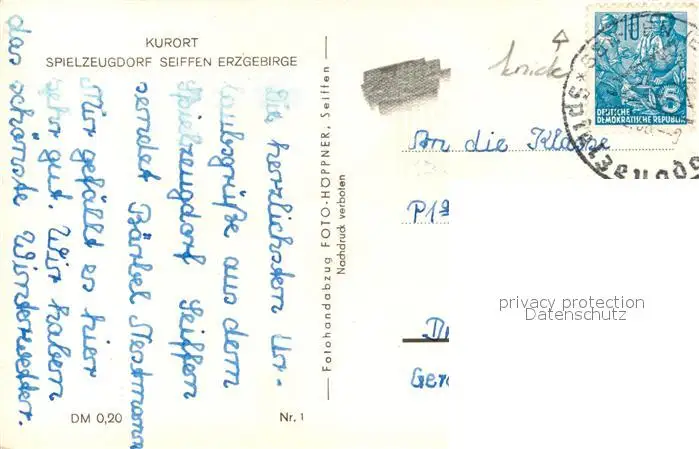 KURORT
SPIELZEUGDORF SEIFFEN ERZGEBIRGE
Die herzlichsten Ur-
laubsgrüße aus dem
Spielzeugdorf Seiffen
sendet Bärbel Nestmann
Mir gefällt es hier
sehr gut. Wir haben
das schönste Winterwetter.
DM 0,20
Nr. 1
Fotohandabzug FOTO-HÖPPNER, Seiffen
Nachdruck verboten
knick
DEUTSCHE
DEMOKRATISCHE REPUBLIK
5
An die Klasse
privacy protection
Datenschutz